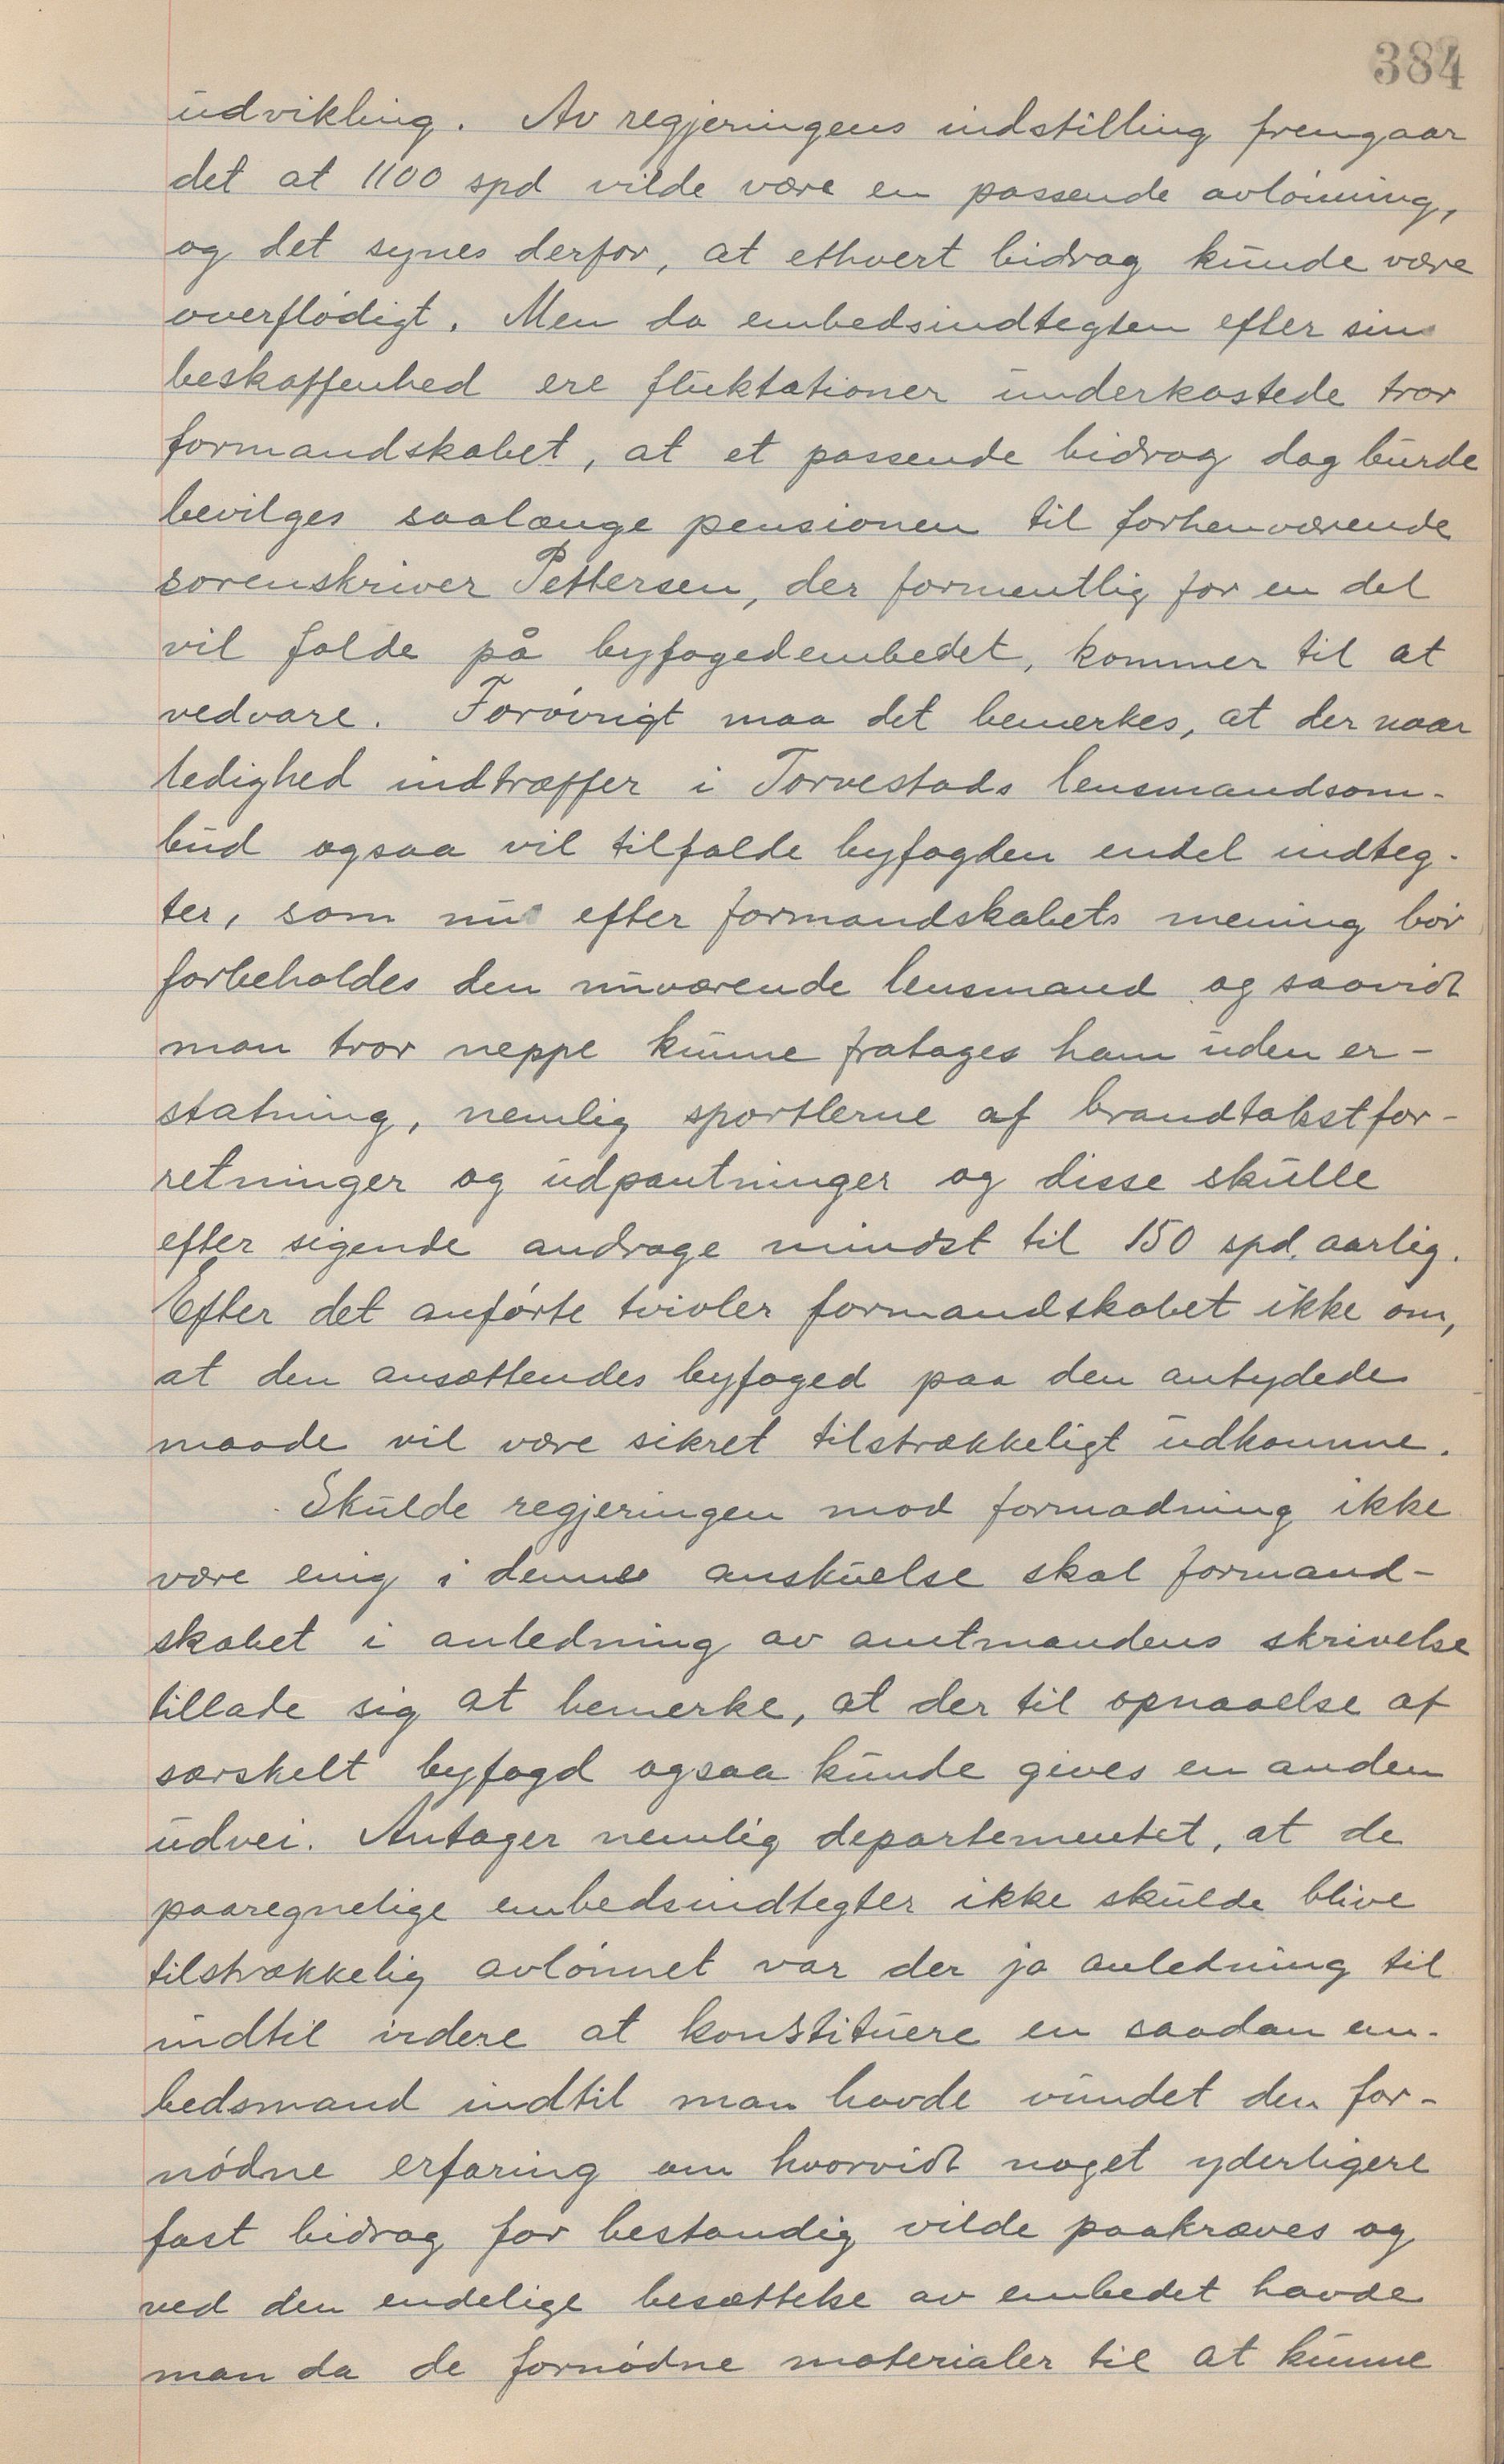 384
udvikling. Av regjeringens indstilling fremgaar
det at 1100 spd vilde være en passende avlønning,
og det synes derfor, at ethvert bidrag kunde være
overflødigt. Men da embedsindtegten efter sin
beskaffenhed ere fluktationer underkastede tror
formandskabet, at et passende bidrag dog burde
bevilges saalænge pensionen til forhenværende
sorenskriver Pettersen, der formentlig for en del
vil falde på byfogedembedet, kommer til at
vedvare. Forøvrigt maa det bemerkes, at der naar
ledighed indtræffer i Torvestads lensmandsom-
bud ogsaa vil tilfalde byfogden endel indteg-
ter, som nu efter formandskabets mening bør
forbeholdes den nuværende lensmand og saavidt
man tror neppe kunne fratages ham uden er-
statning, nemlig sportlerne af brandtakstfor-
retninger og udpantninger og disse skulle
efter sigende andrage mindst til 150 spd. aarlig.
Efter det anførte tvivler formandskabet ikke om,
at den ansættendes byfoged paa den antydede
maade vil være sikret tilstrækkeligt udkomme.
Skulde regjeringen mod formodning ikke
være enig i denne anskuelse skal formand-
skabet i anledning av amtmandens skrivelse
tillade sig at bemerke, at der til opnaaelse af
særskelt byfogd ogsaa kunde gives en anden
udvei. Antager nemlig departementet, at de
paaregnelige embedsindtegter ikke skulde blive
tilstrækkelig avlønnet var der jo anledning til
indtil videre at konstituere en saadan em-
bedsmand indtil man havde vundet den for-
nødne erfaring om hvorvidt noget yderligere
fast bidrag for bestandig vilde paakræves og
ved den endelige besættelse av embedet havde
man da de fornødne materialer til at kunne